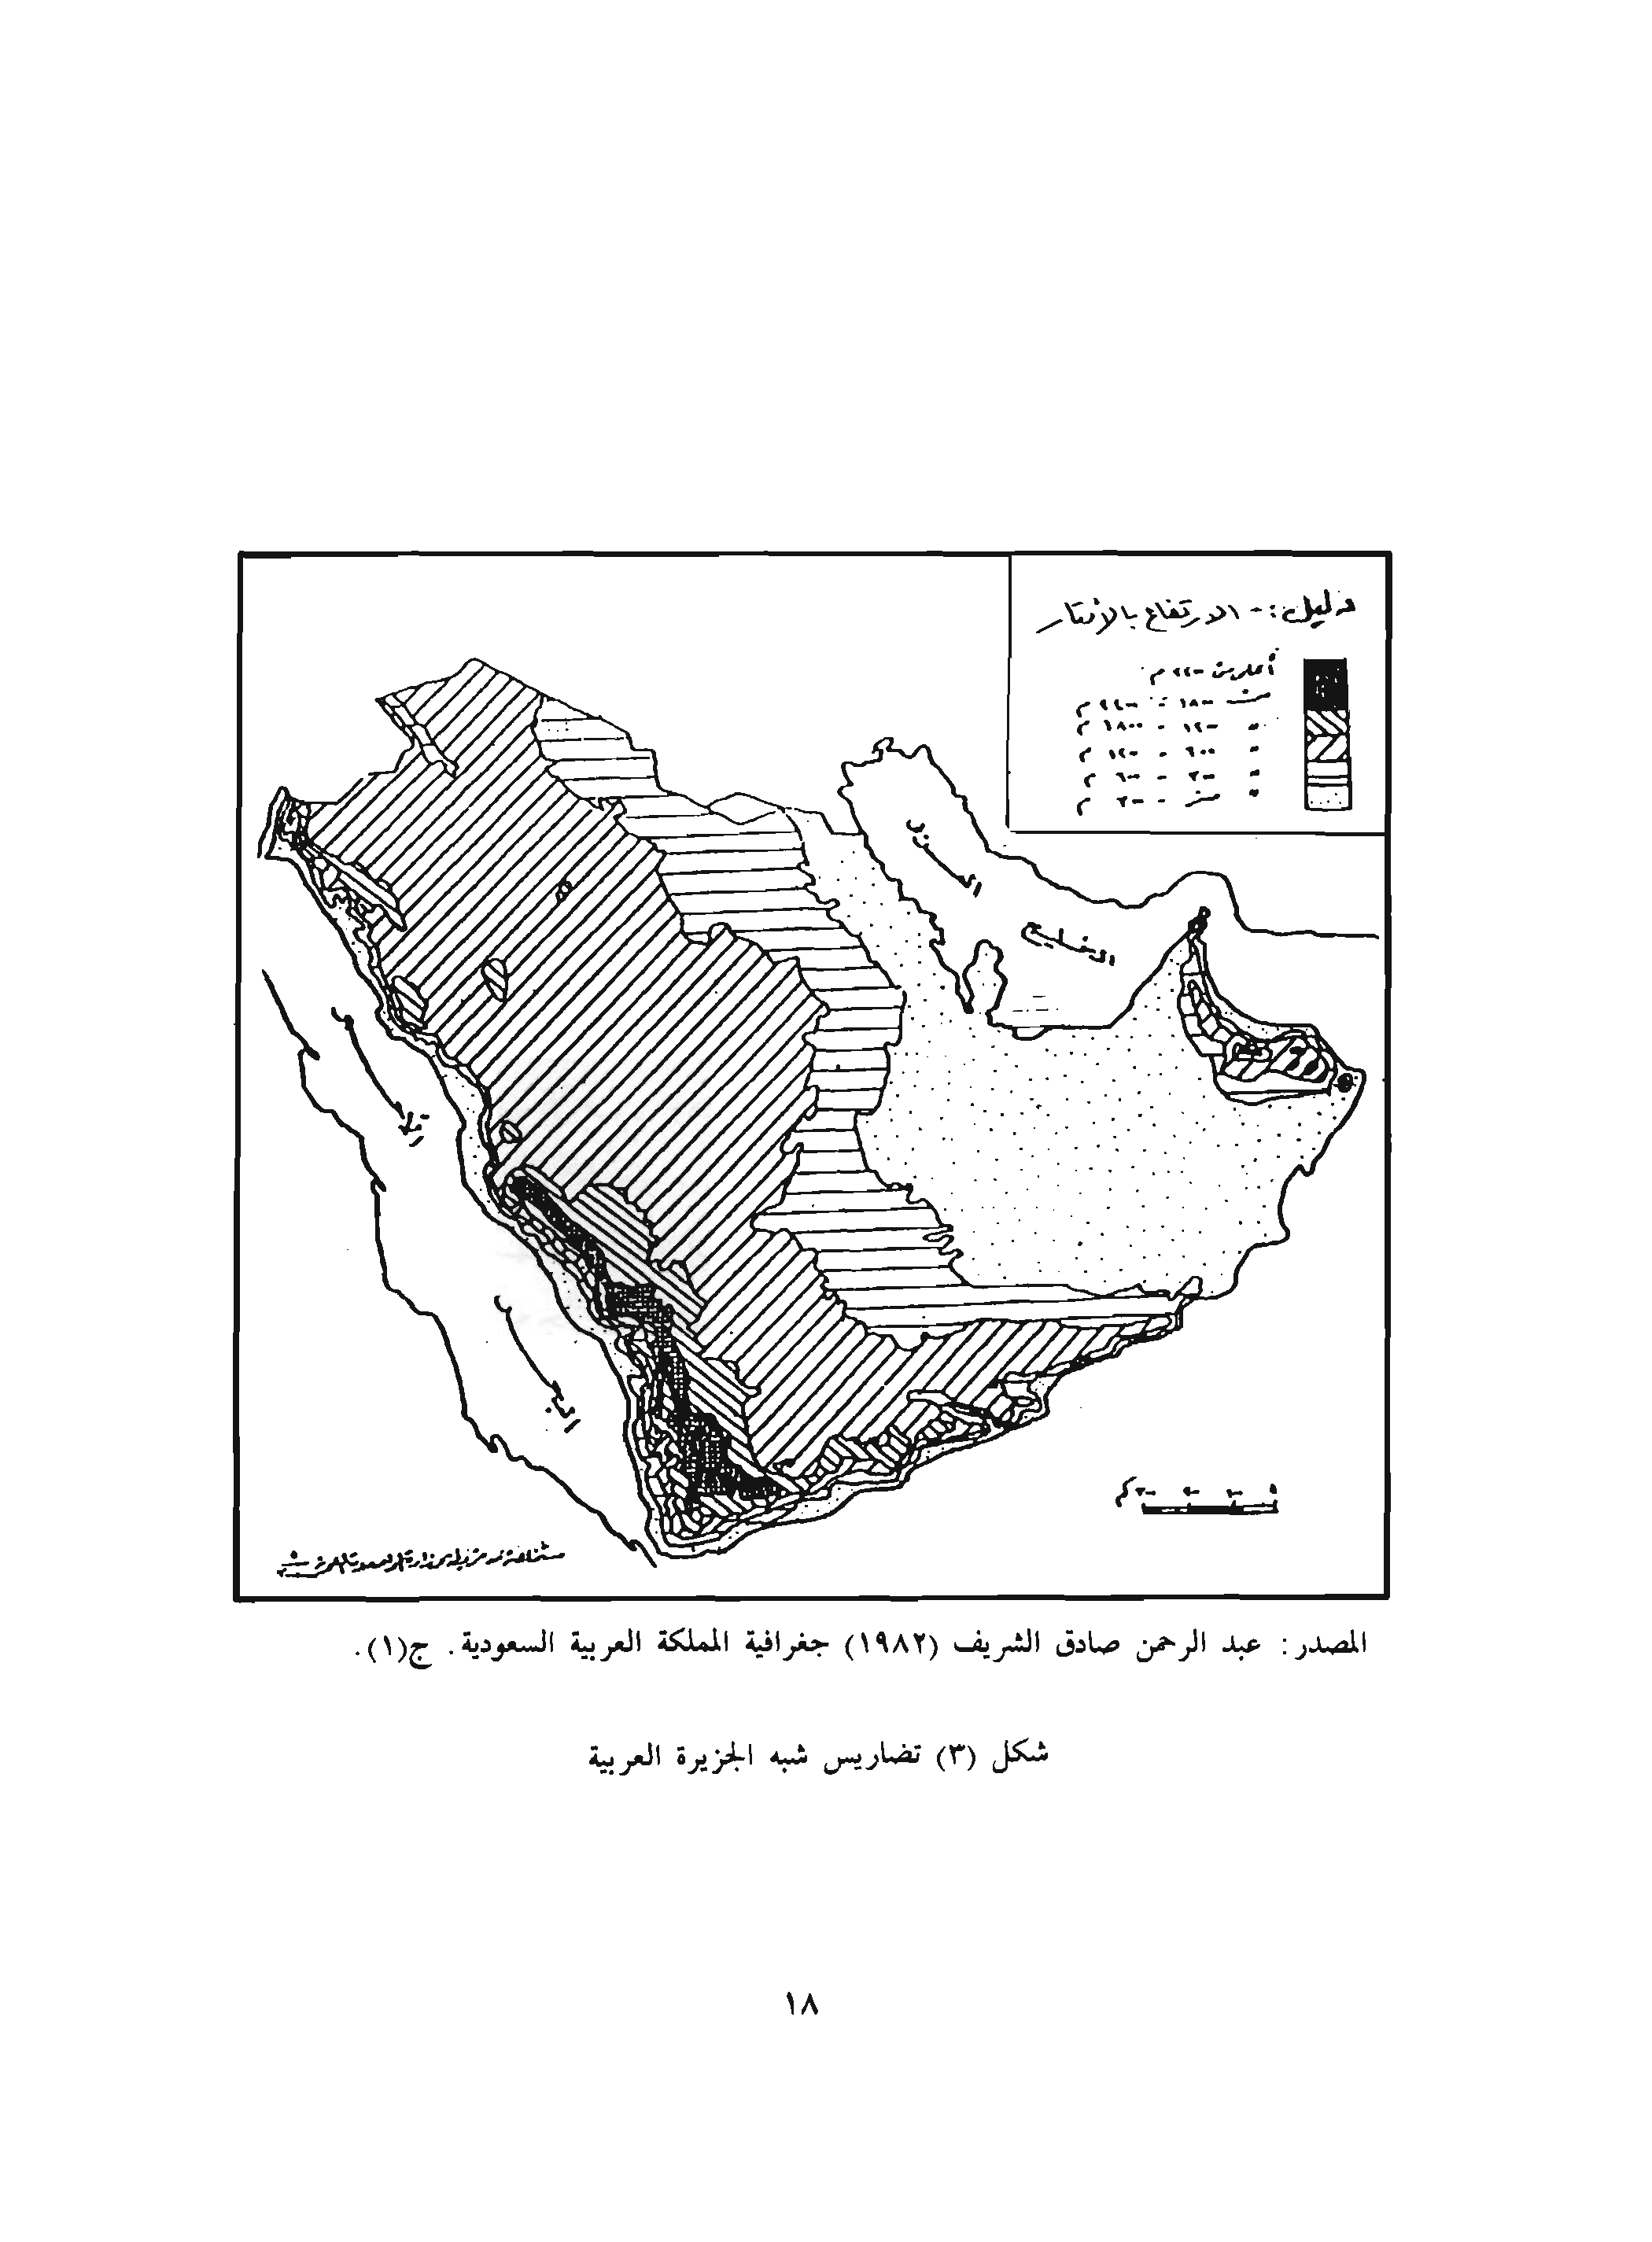 دليل :- الارتفاع بالأمتار
أعلى من ٢٤٠٠ م
من ١٨٠٠ - ٢٤٠٠ م
" ١٢٠٠ - ١٨٠٠ م
" ٦٠٠ - ١٢٠٠ م
" ٣٠٠ - ٦٠٠ م
" صفر - ٣٠٠ م
الخليج
العربي
البحر
الأحمر
كم
المصدر : عبد الرحمن صادق الشريف (١٩٨٢) جغرافية المملكة العربية السعودية . ج(١).
شكل (٣) تضاريس شبه الجزيرة العربية
١٨